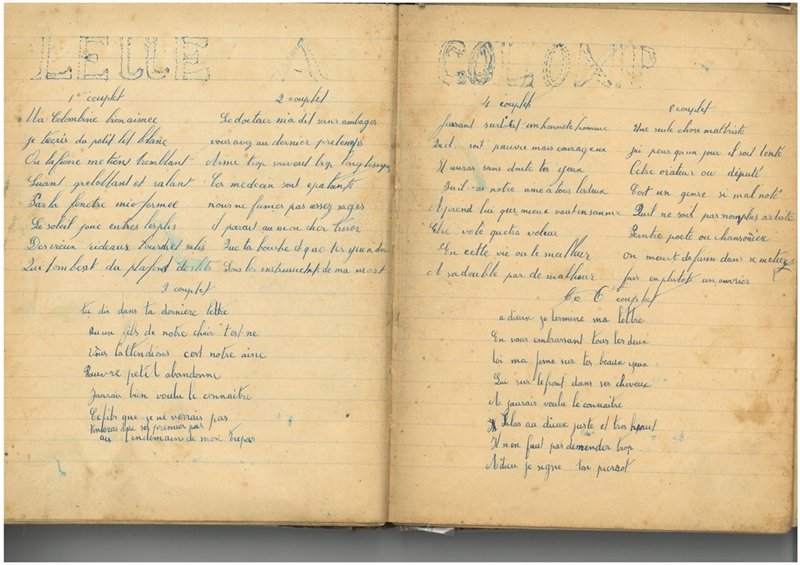 LETTRE A
COLOMB
1er couplet
Ma Colombine bien aimée
je técris du petit lit
Ou la fièvre me tient tremblant
Suant grelottant et ralant
Par la fenetre mie fermee
Le soleil joue entres les plis
Des vieux rideaux lourds et salis
Qui tombent du plafond
2 couplet
Le docteur m'a dit sans ambages
vous avez au dernier printemps
Aimé trop souvent trop longtemps
La medecin sont epatants
nous ne fumes pas assez sages
il parait au mon cher trésor
Que ta bouche et que tes yeux
Sont les instruments de ma mort
3 couplet
tu dis dans ta derniere lettre
Qu un fils de notre chair t'est ne
Vous l'attendions cest notre aine
Pauvre petit abandonne
Jaurais bien voulu le connaitre
Ce fils que je ne verrais pas
ses premier pas
au lendemain de mon trepas
4 couplet
faisant surtout un honnete homme
Quil soit pauvre mais courageux
Il auras sans doute tes yeux
Quil ai notre ame a tous les deux
Aprend lui que mieux vaut en somme
Etre volé quetre voleur
En cette vie ou le malheur
A sa double par de malheur
5 couplet
Une seule chose mattriste
Jai peur qu un jour il soit tenté
Cetre orateur ou député
Cest un genre si mal noté
Quil ne soit pas non plus artiste
Peintre poete ou chansonier
on meurt de faim dans se metier
fais en plutot un ouvrier
6 couplet
adieux je termine ma lettre
En vous embrassant tous les deux
toi ma femme sur tes beaux yeux
Lui sur le front dans ses cheveux
A jaurais voulu le connaitre
helas au dieux juste et tres haut
Il n en faut pas demender trop
Adieu je signe ton pierrot